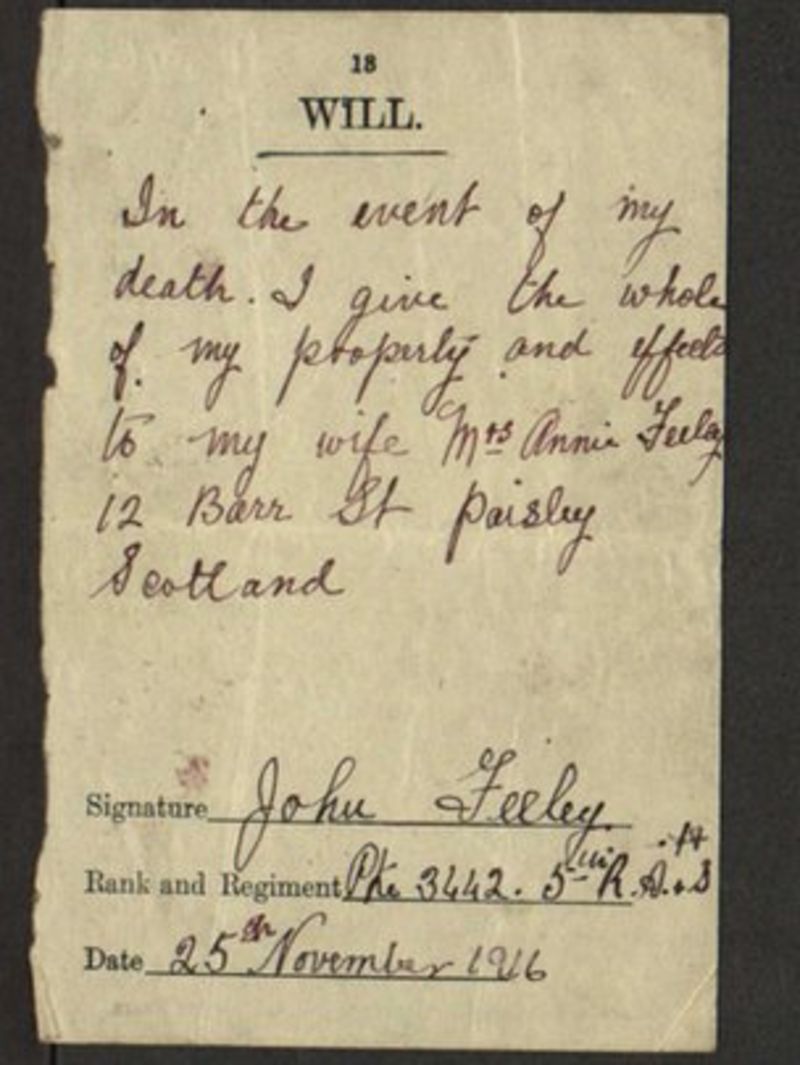 18
WILL.
In the event of my
death. I give the whole
of my property and effects
to my wife Mrs Annie Feeley
12 Barr St Paisley
Scotland
Signature John Feeley.
Rank and Regiment Pte 3442. 5th R.
Date 25th November 1916